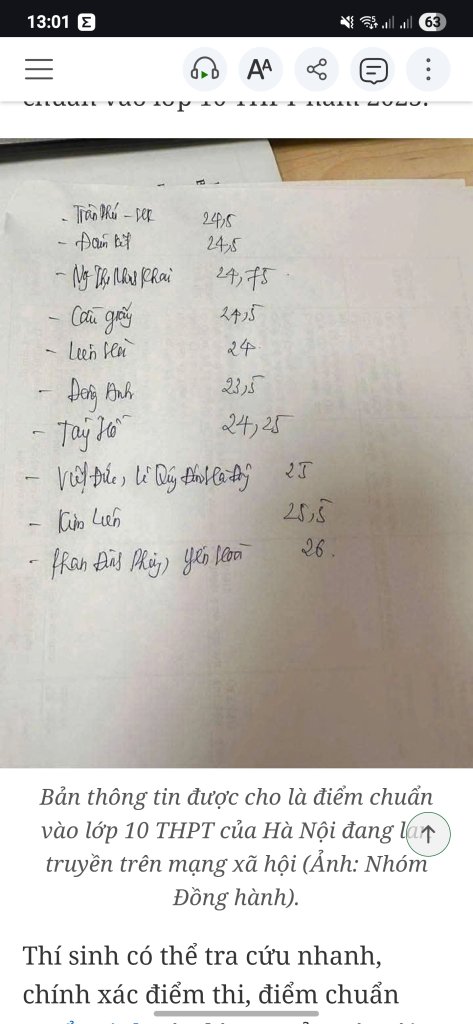 13:01 Σ 63
AA
chuẩn vào lớp 10 THPT năm 2025.
- Trần Phú - 24,5
- Đoàn Kết 24,5
- Ng Thị Minh Khai 24,75
- Cầu giấy 24,5
- 24
- Đông Anh 23,5
- Tây Hồ 24,25
- Việt Đức, Lê Quý Đôn Hà Đg 25
- Kim Liên 25,5
- Phan Đình Phùng, Yên Hoà 26.
Bản thông tin được cho là điểm chuẩn
vào lớp 10 THPT của Hà Nội đang lan
truyền trên mạng xã hội (Ảnh: Nhóm
Đồng hành).
Thí sinh có thể tra cứu nhanh,
chính xác điểm thi, điểm chuẩn